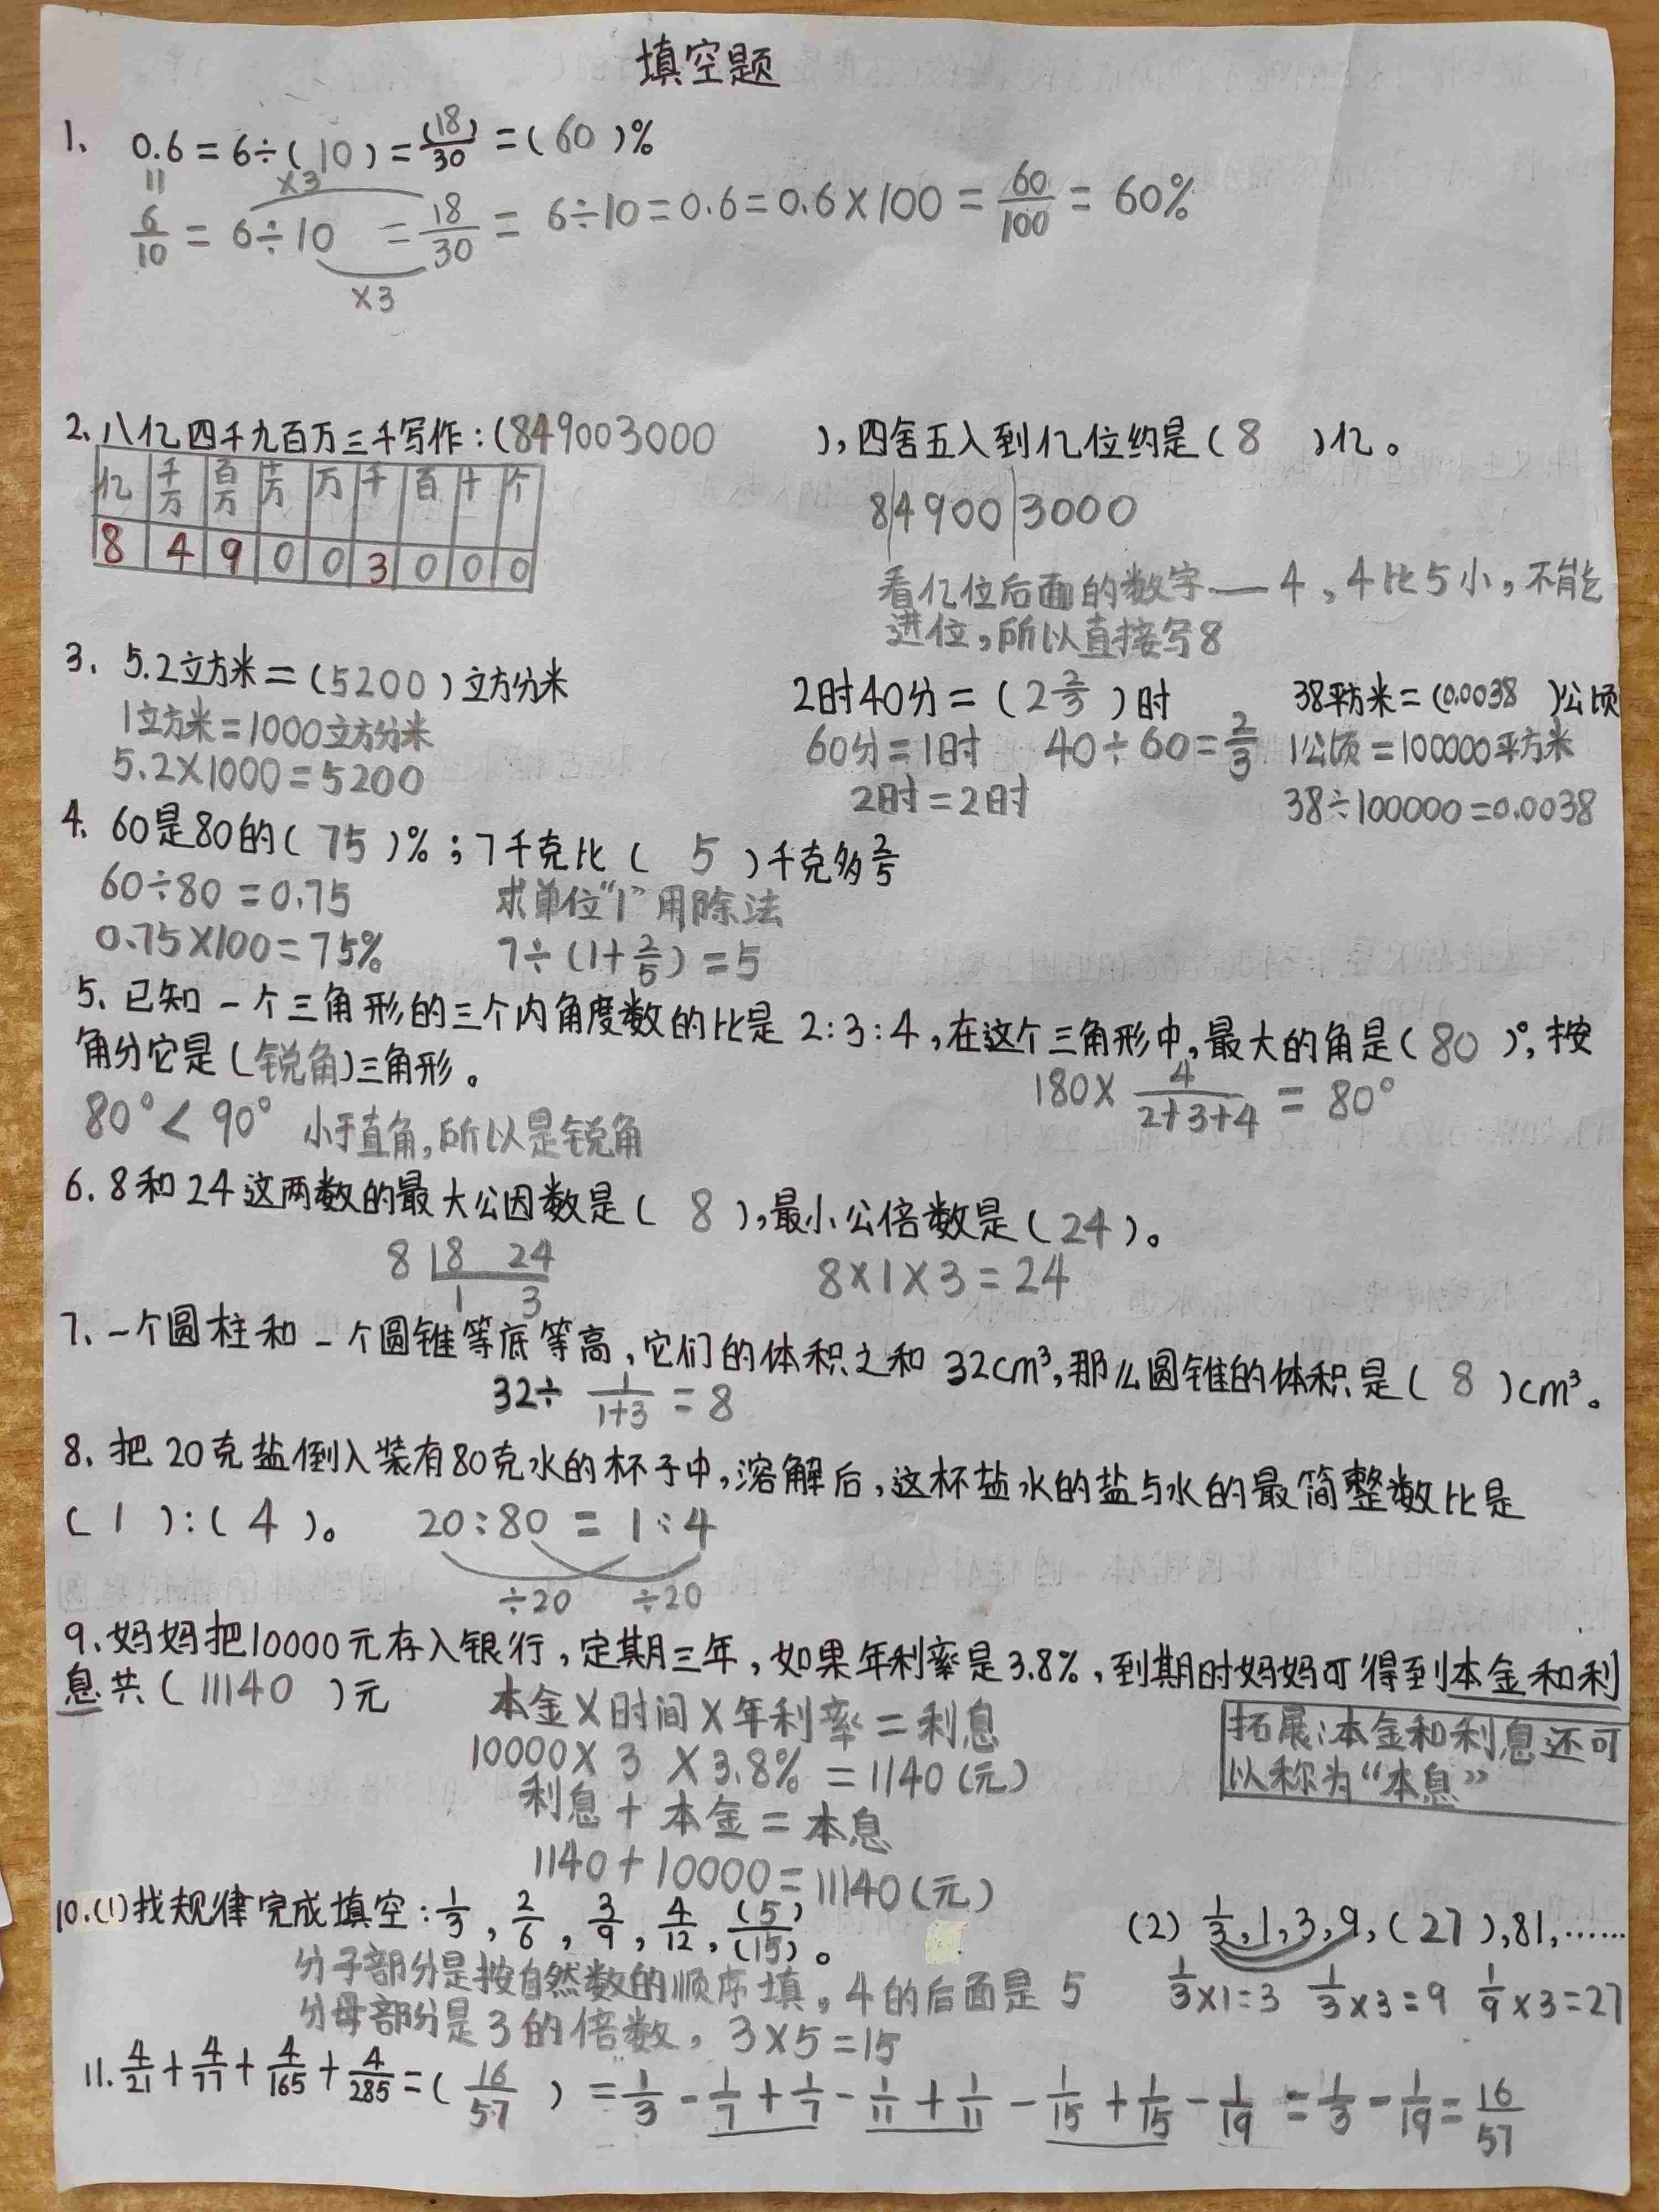 填空题
1、 0.6=6÷(10)=(18)/30=(60)%
×3
6/10=6÷10=18/30=6÷10=0.6=0.6×100=60/100=60%
×3
2、八亿四千九百万三千写作:(849003000 ),四舍五入到亿位约是(8 )亿。
亿 千万 百万 十万 万 千 百 十 个
8 4 9 0 0 3 0 0 0
8|4900|3000
看亿位后面的数字——4,4比5小,不能
进位,所以直接写8
3、5.2立方米=(5200)立方分米 2时40分=(2 2/3)时 38平方米=(0.0038 )公顷
1立方米=1000立方分米 60分=1时 40÷60=2/3 1公顷=100000平方米
5.2×1000=5200 2时=2时 38÷100000=0.0038
4、60是80的(75)%;7千克比(5)千克多2/5
60÷80=0.75 求单位“1”用除法
0.75×100=75% 7÷(1+2/5)=5
5、已知一个三角形的三个内角度数的比是2:3:4,在这个三角形中,最大的角是(80)°,按
角分它是(锐角)三角形。 180×4/(2+3+4)=80°
80°<90° 小于直角,所以是锐角
6、8和24这两数的最大公因数是(8),最小公倍数是(24)。
8 | 8 24 8×1×3=24
1 3
7、一个圆柱和一个圆锥等底等高,它们的体积之和32cm³,那么圆锥的体积是(8)cm³。
32÷1/(1+3)=8
8、把20克盐倒入装有80克水的杯子中,溶解后,这杯盐水的盐与水的最简整数比是
(1):(4)。 20:80=1:4
÷20 ÷20
9、妈妈把10000元存入银行,定期三年,如果年利率是3.8%,到期时妈妈可得到本金和利
息共(11140)元 本金×时间×年利率=利息
10000×3×3.8%=1140(元)
利息+本金=本息
1140+10000=11140(元)
拓展:本金和利息还可
以称为“本息”
10.(1)找规律完成填空:1/3,2/6,3/9,4/12,(5)/(15)。 (2)1/3,1,3,9,(27),81,……
分子部分是按自然数的顺序填,4的后面是5 1/3×1=3 1/3×3=9 1/9×3=27
分母部分是3的倍数,3×5=15
11.4/21+4/77+4/165+4/285=(16/57)=1/3-1/7+1/7-1/11+1/11-1/15+1/15-1/19=1/3-1/19=16/57